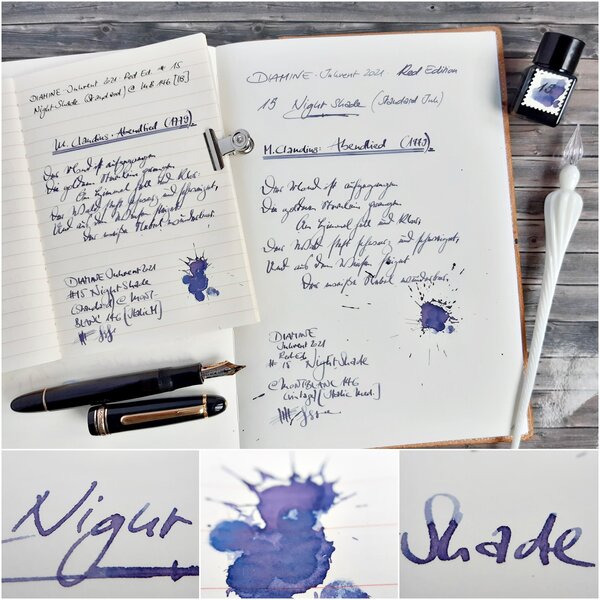 DIAMINE · Inkvent 2021 · Red Ed. # 15
Night Shade (Standard) @ M.B. 146
M. Claudius: Abendlied (1779).
Der Mond ist aufgegangen
Die goldnen Sternlein prangen
Am Himmel hell und klar.
Der Wald steht schwarz und schweiget,
Und aus den Wiesen steiget
Der weiße Nebel wunderbar.
DIAMINE Inkvent 2021
#15 Night Shade
(Standard) @ MONT
BLANC 146
DIAMINE · Inkvent 2021 · Red Edition
15 Night Shade (Standard Ink)
M. Claudius: Abendlied (1779).
Der Mond ist aufgegangen
Die goldnen Sternlein prangen
Am Himmel hell und klar.
Der Wald steht schwarz und schweiget,
Und aus den Wiesen steiget
Der weiße Nebel wunderbar.
DIAMINE
Inkvent 2021
Red Ed.
# 15 Night Shade
@ MONTBLANC 146
(vintage) [Italic Med.]
15
Night
Shade